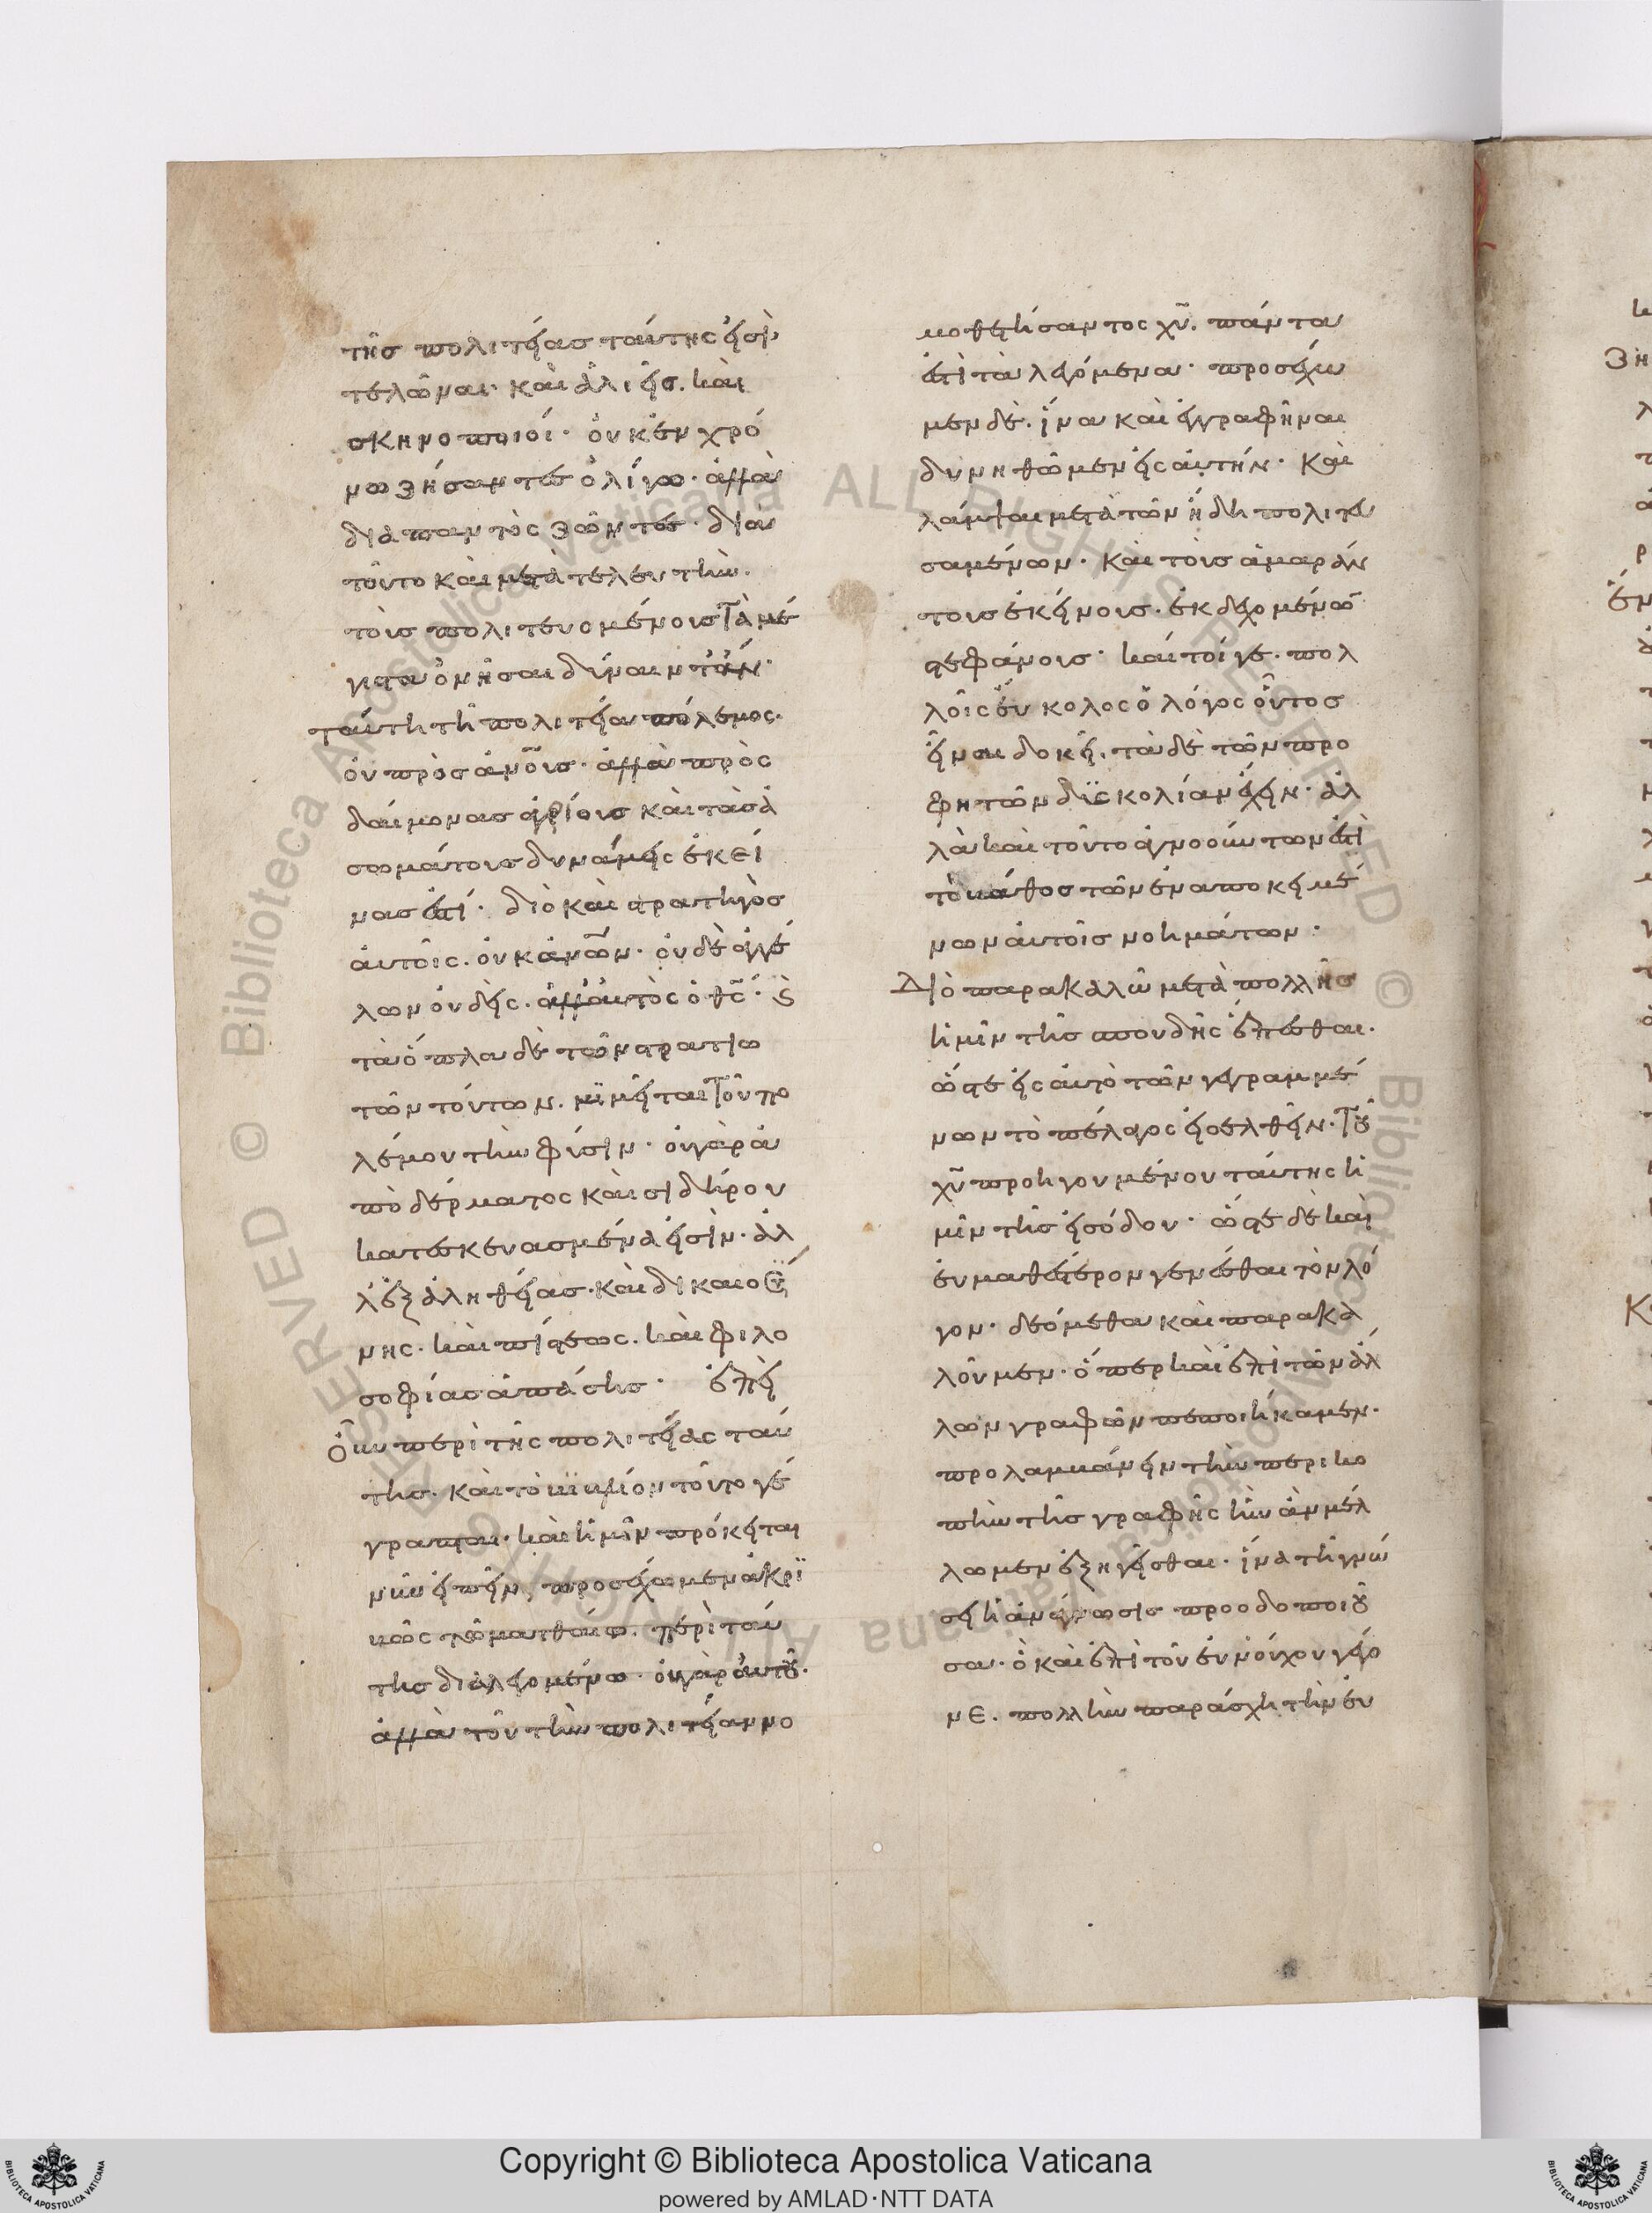 τῆσ πολιτείασ ταύτης εἰσὶ
τελῶναι· καὶ ἁλιεῖσ. καὶ
σκηνοποιοί· οὐκ ἐν χρό
νω ζήσαντεσ ὀλίγω· ἀλλὰ
διαπαντὸς ζῶντεσ· διὰ
τοῦτο καὶ μετὰ τελευτὴν.
τοὺσ πολιτευομένουσ τὰ μέ
γιστα ὀνῆσαι δύναιντ ἄν·
ταύτη τῆ πολιτεία πόλεμος·
οὐ πρὸσ ἀνοῦσ· ἀλλὰ πρὸς
δαίμονασ ἀγρίουσ καὶ τὰσ ἀ
σωμάτουσ δυνάμεις ἐκεί
νασ ἐστί· διὸ καὶ στρατηγὸσ
αὐτοῖς. οὐκ ἀνων· οὐδὲ ἀγγέ
λων οὐδεὶς. ἀλλ αὐτὸς ὁ θς·
τὰ ὅπλα δὲ τῶν στρατιω
τῶν τούτων. μιμεῖται τοῦ πο
λέμου τὴν φύσιν· οὐ γὰρ ἀ
πὸ δέρματος καὶ σιδήρου
κατεσκευασμένα εἰσὶν· ἀλ
λ ἐξ ἀληθείασ· καὶ δικαιοσύ
νης. καὶ πίστεως. καὶ φιλο
σοφίασ ἁπάσης· ἐπεὶ
οὖν περὶ τῆς πολιτείας ταύ
της. καὶ τὸ βιβλίον τοῦτο γέ
γραπται. καὶ ἡμῖν πρόκειται
νῦν εἰπεῖν, προσέχωμεν ἀκρι
βῶς τῶ ματθαίω. περὶ ταύ
της διαλεγομένω· οὐ γὰρ αὐτοῦ·
ἀλλὰ τοῦ τὴν πολιτείαν νο
μοθετήσαντος χυ. πάντα
ἐστὶ τὰ λεγόμενα· προσέχω
μεν δὲ. ἵνα καὶ ἐγγραφῆναι
δυνηθῶμεν εἰς αὐτήν· καὶ
λάμψαι μετὰ τῶν ἤδη πολιτευ
σαμένων· καὶ τοὺσ ἀμαράν
τουσ ἐκείνουσ. ἐκδεχομένων
στεφάνουσ· καίτοίγε. πολ
λοῖς εὔκολος ὁ λόγος οὗτοσ
εἶναι δοκεῖ. τὰ δὲ τῶν προ
φητῶν δυσκολίαν ἔχειν· ἀλ
λὰ καὶ τοῦτο ἀγνοούντων ἐστὶ
τὸ βάθοσ τῶν ἐναποκειμέ
νων αὐτοῖσ νοημάτων·
Διὸ παρακαλῶ μετὰ πολλῆσ
ἡμῖν τῆσ σπουδῆς ἕπεσθαι.
ὥστε εἰς αὐτὸ τῶν γεγραμμέ
νων τὸ πέλαγος εἰσελθεῖν· τοῦ
χυ προηγουμένου ταύτης ἡ
μῖν τῆσ εἰσόδου· ὥστε δὲ καὶ
εὐμαθέστερον γενέσθαι τὸν λό
γον· δεόμεθα καὶ παρακα
λοῦμεν· ὅπερ καὶ ἐπὶ τῶν ἄλ
λων γραφῶν πεποιήκαμεν·
προλαμβάνειν τὴν περικο
πὴν τῆσ γραφῆς ἣν ἂν μέλ
λωμεν ἐξηγεῖσθαι. ἵνα τῆ γνώ
σει ἡ ἀνάγνωσισ προοδοποιοῦ
σα· ὃ καὶ ἐπὶ τοῦ εὐνούχου γέγο
νε. πολλὴν παράσχη τὴν εὐ